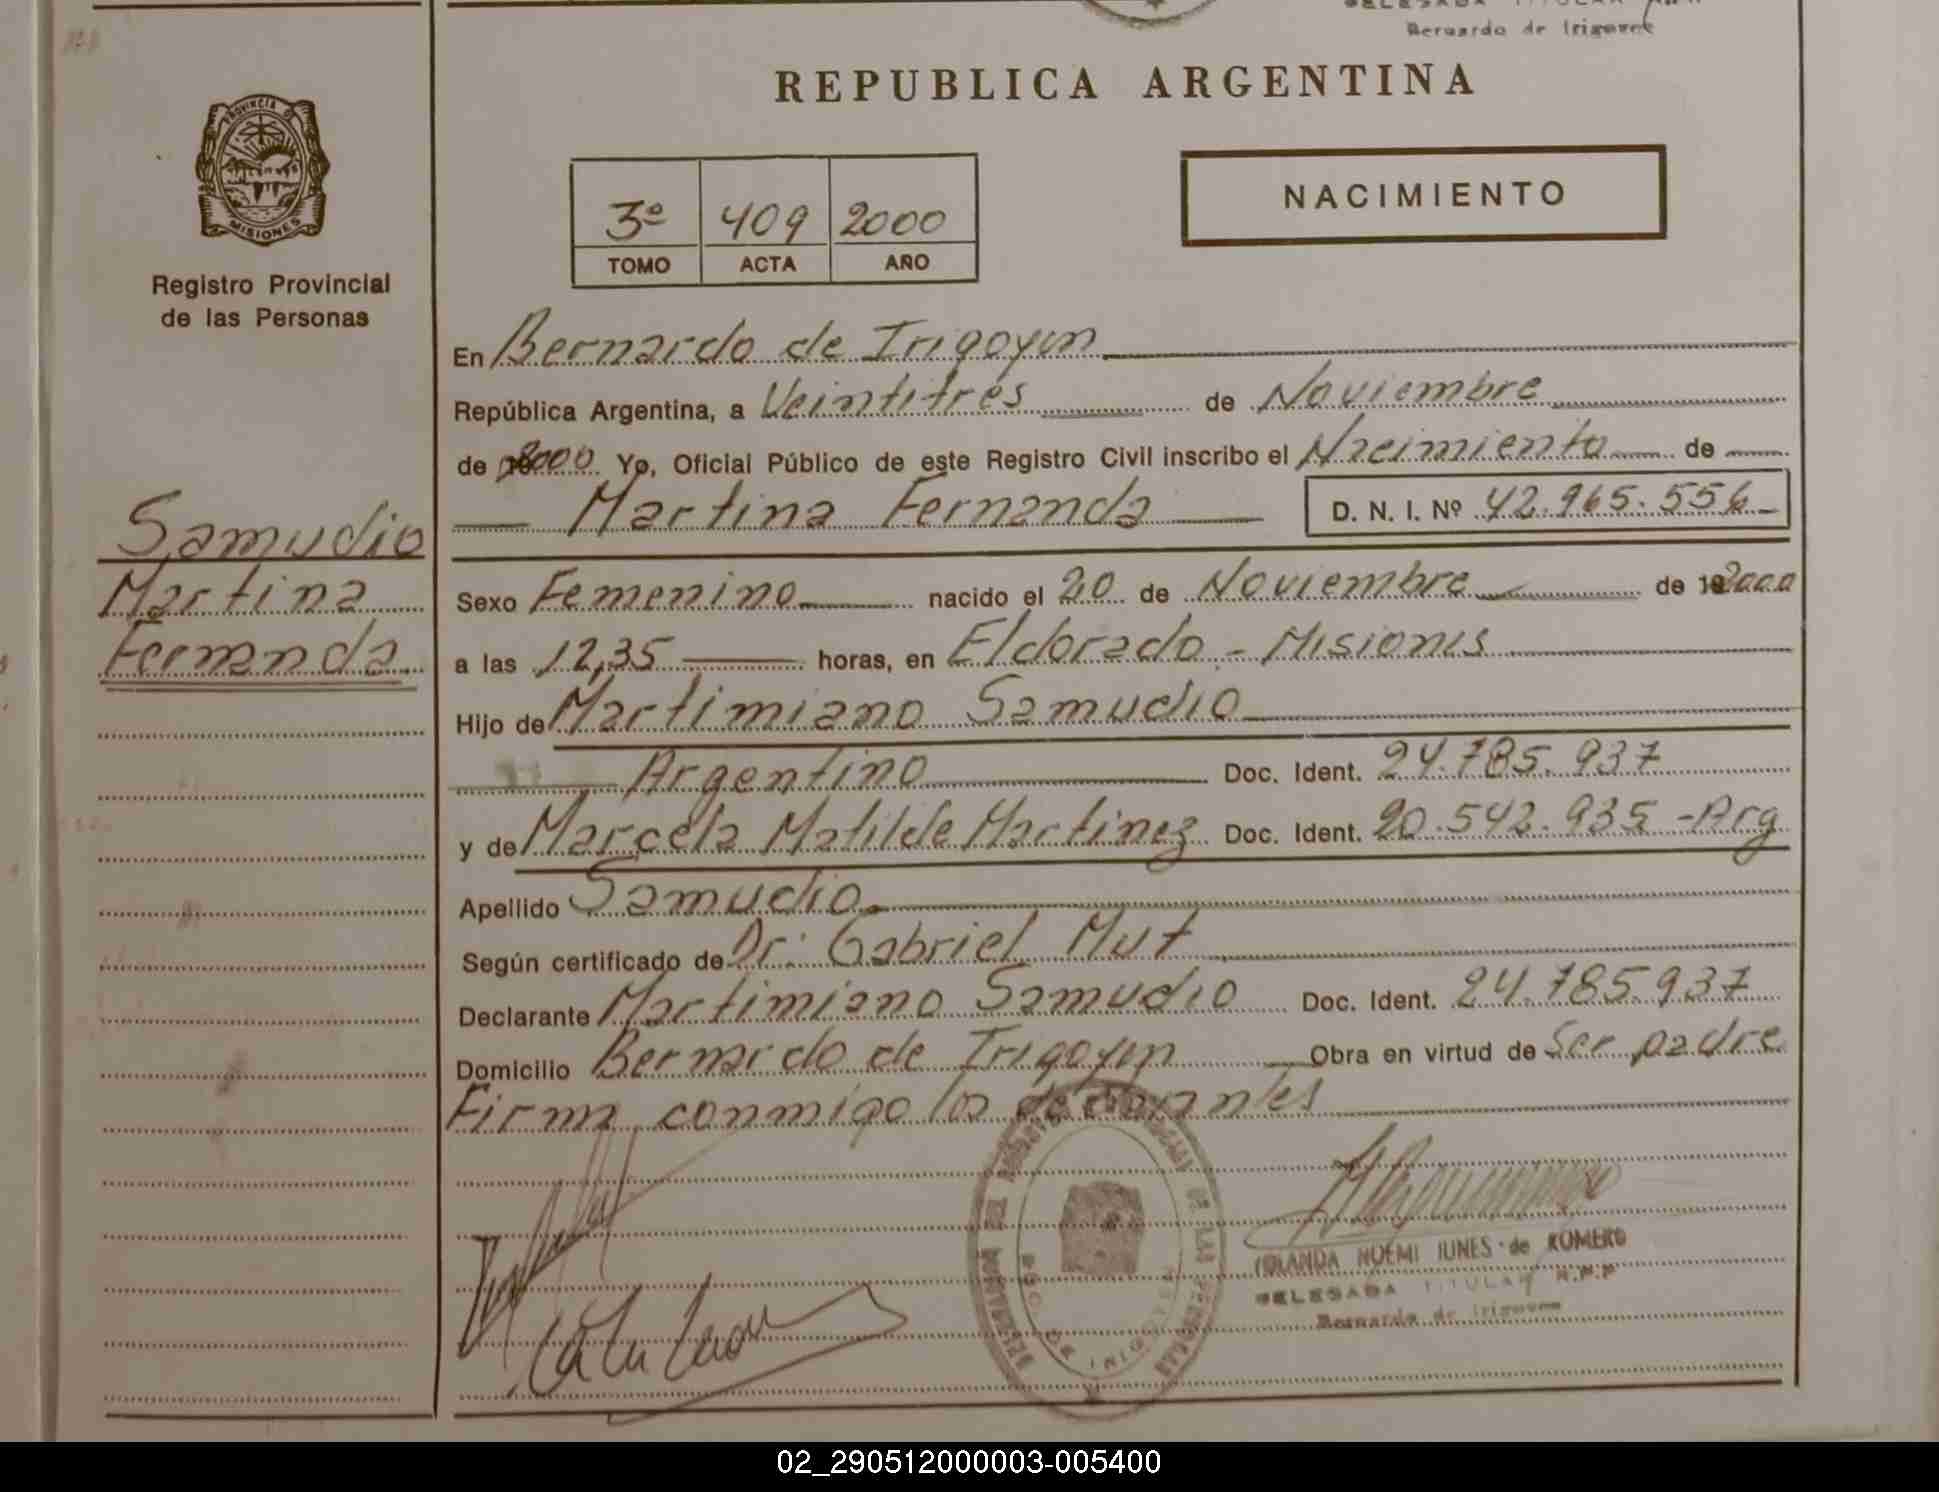 Bernardo de Irigoyen
REPUBLICA ARGENTINA
PROVINCIA DE
MISIONES
Registro Provincial
de las Personas
3º 409 2000
TOMO ACTA AÑO
NACIMIENTO
En Bernardo de Irigoyen
República Argentina, a Veintitres de Noviembre
de 2000 Yo, Oficial Público de este Registro Civil inscribo el Nacimiento de
Martina Fernanda D. N. I. Nº 42.965.556
Samudio
Martina
Fernanda
Sexo Femenino nacido el 20 de Noviembre de 2000
a las 12,35 horas, en Eldorado - Misiones
Hijo de Martimiano Samudio
Argentino Doc. Ident. 24.785.937
y de Marcela Matilde Martinez Doc. Ident. 20.542.935 - Arg
Apellido Samudio
Según certificado de Dr: Gabriel Mut
Declarante Martimiano Samudio Doc. Ident. 24.785937
Domicilio Bernardo de Irigoyen Obra en virtud de Ser padre
Firma conmigo los declarantes
YOLANDA NOEMI IUNES de ROMERO
DELEGADA TITULAR R.P.P
Bernardo de Irigoyen
02_290512000003-005400